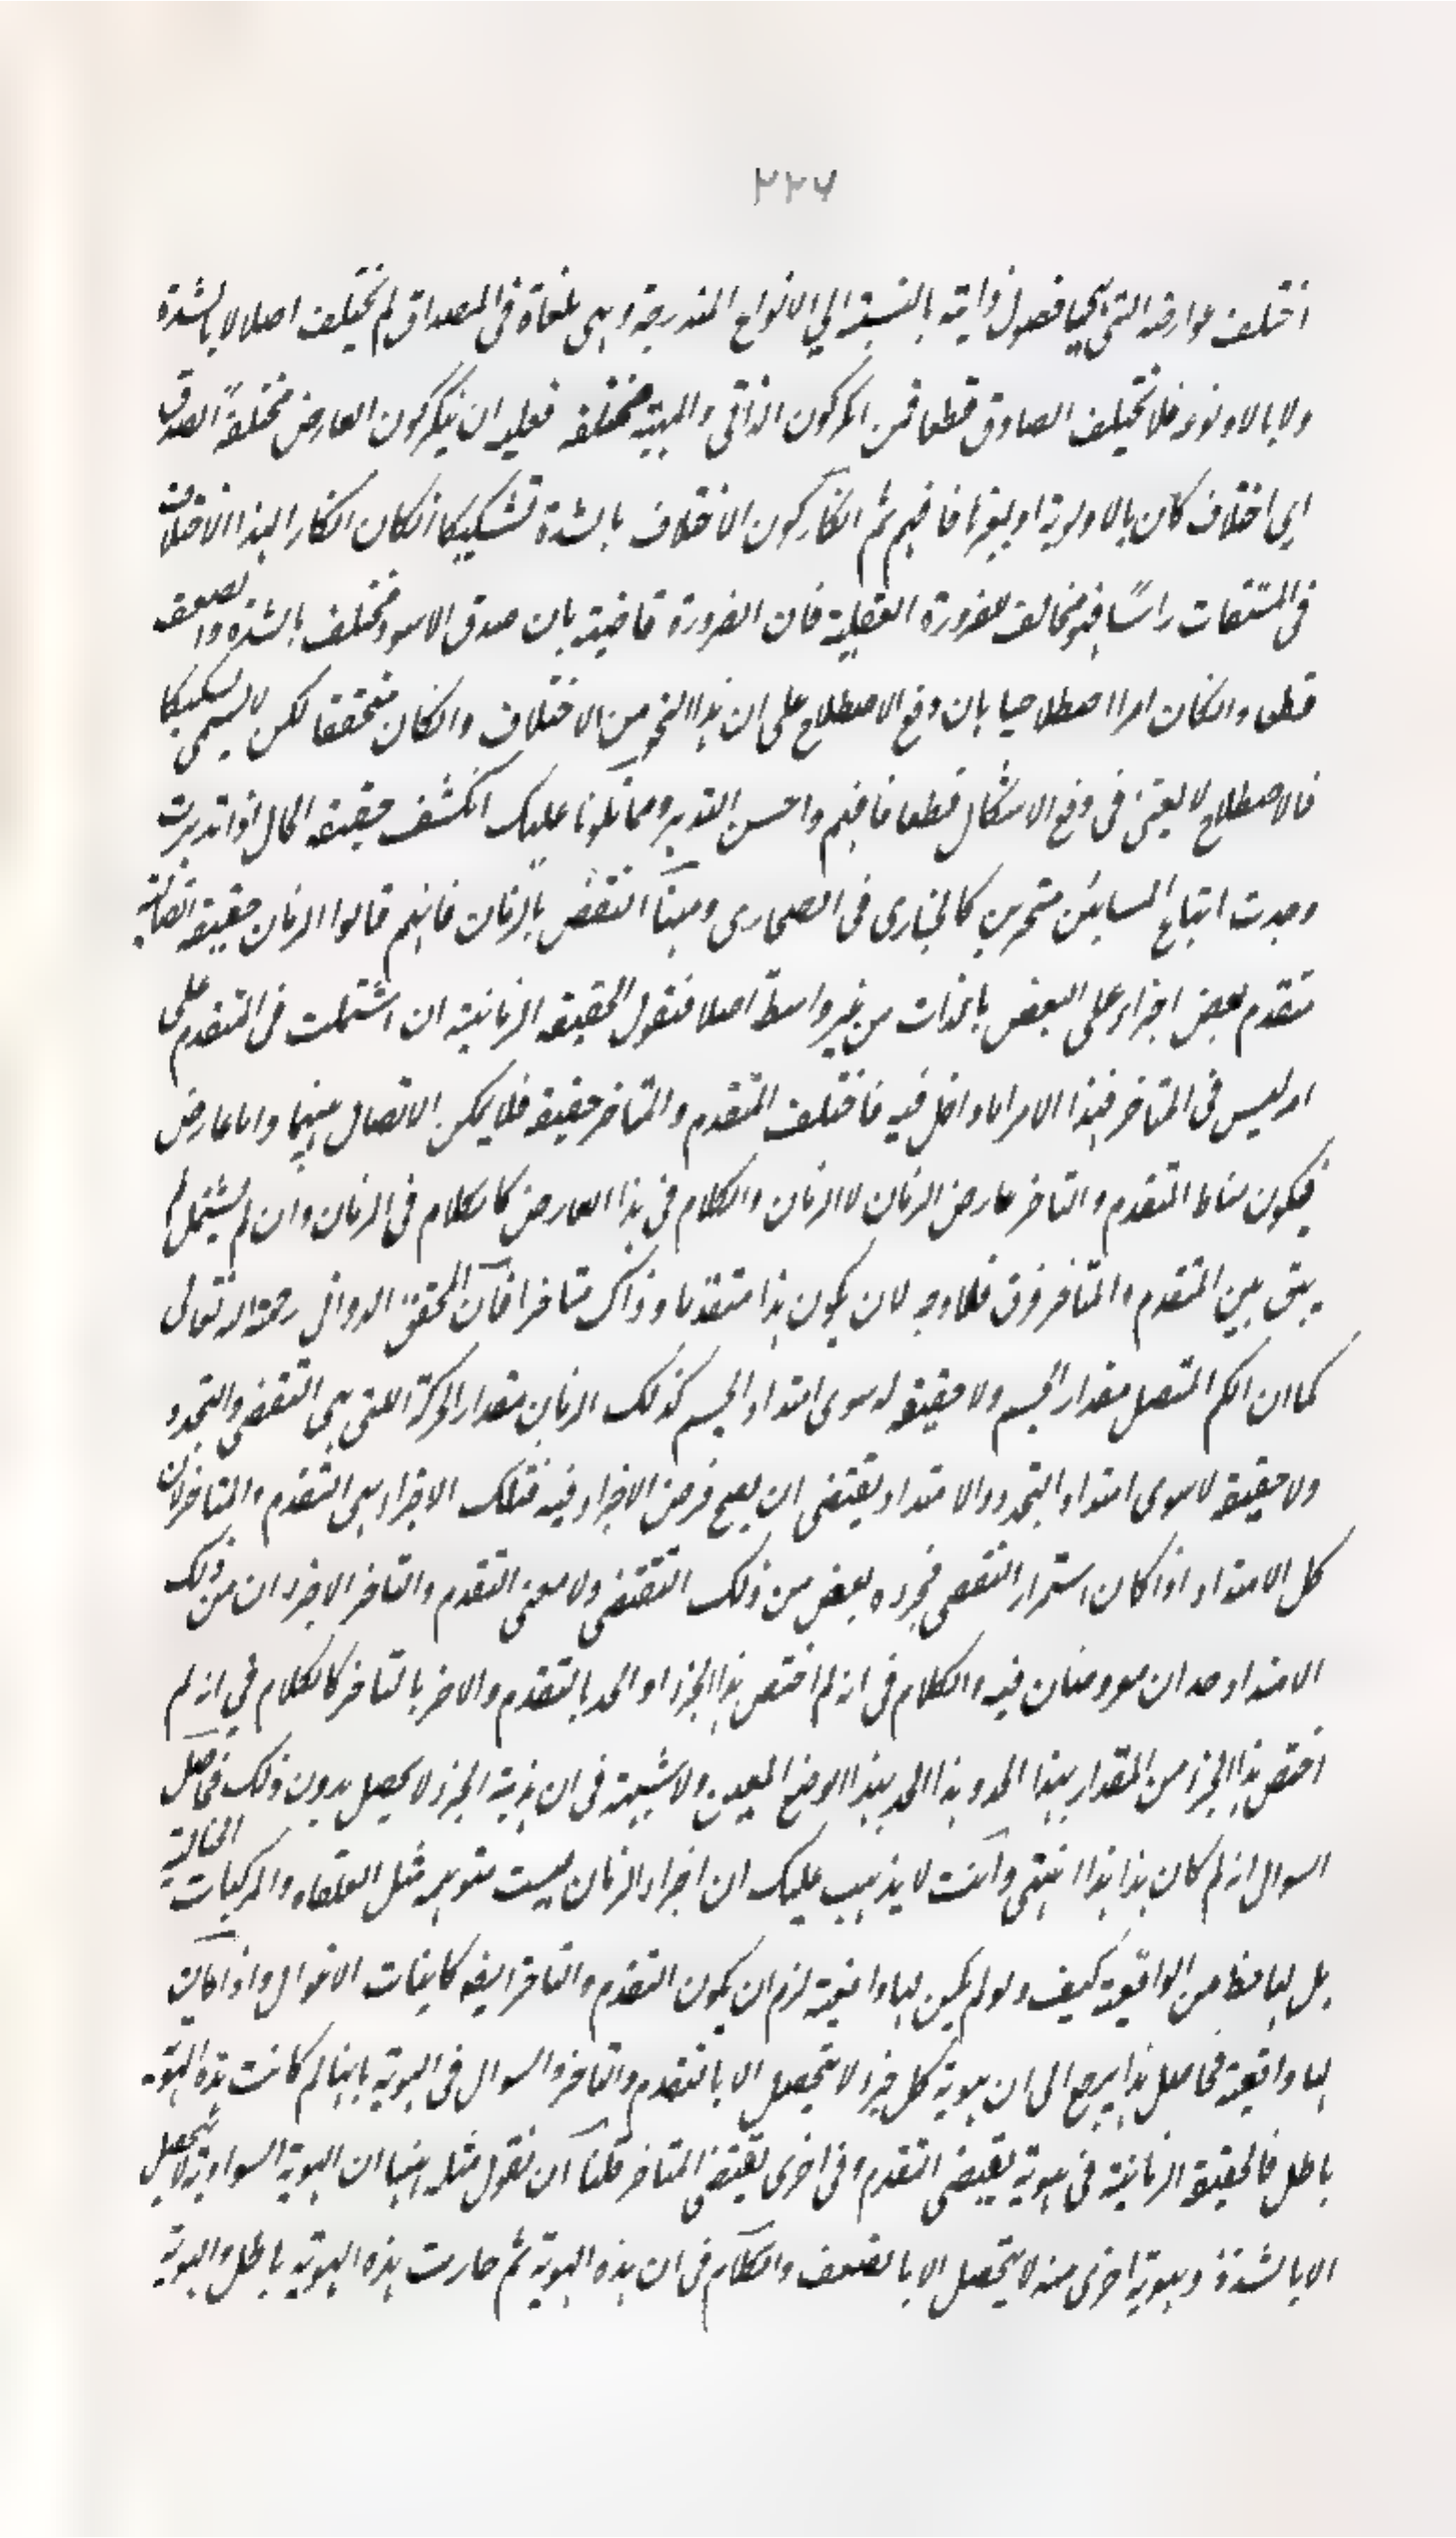 ٢٢٦
اختلف عوارضه التي هي فصول ذاتية بالنسبة الى الانواع المندرجة وهي ملغاة في المصداق لم تختلف اصلا لا بالشدة
ولا بالاولوية فلا تختلف الصادق قطعا فمن انكر كون الذاتي والمهية مختلفة فعليه ان ينكر كون العارض مختلفة الصدق
اي اختلاف كان بالاولوية او بغيرها فافهم ثم انكار كون الاختلاف بالشدة تشكيكا ان كان انكارا لهذا الاختلاف
في المشتقات راسًا فهو مخالف للضرورة العقلية فان الضرورة قاضية بان صدق الاسود مختلف بالشدة والضعف
قطعا وان كان امرا اصطلاحيا بان وقع الاصطلاح على ان هذا النحو من الاختلاف وان كان متحققا لكن لا يسمى تشكيكا
فالاصطلاح لا يغني في دفع الاشكال قطعا فافهم واحسن التدبر ومما تلونا عليك انكشف حقيقة الحال اذا تدبرت
وجدت اتباع المشايين متحيرين كالحباري في الصحاري وههنا النقض بالزمان فانهم قالوا الزمان حقيقة متصلة
متقدم بعض اجزاءه على البعض بالذات من غير واسطة اصلا فنقول الحقيقة الزمانية ان اشتملت في المتقدم على
امر ليس في المتاخر فهذا الامر اما داخل فيه فاختلف المتقدم والمتاخر حقيقة فلا يمكن الاتصال بينهما واما عارض
فيكون مناط التقدم والتاخر عارض الزمان لا الزمان والكلام في هذا العارض كالكلام في الزمان وان لم يشتمل لم
يبق بين المتقدم والمتاخر فرق فلا وجه لان يكون هذا متقدما وذاك متاخرا قال المحقق الدواني رحمه الله تعالى
كما ان الكم المتصل مقدار الجسم ولا حقيقة له سوى امتداد الجسم كذلك الزمان مقدار الحركة التي هي التقضي والتجدد
ولا حقيقة له سوى امتداد التجدد والامتداد يقتضي ان يصح فرض الاجزاء فيه فتلك الاجزاء هي المتقدم والمتاخر لان
كل الامتداد اذا كان استمرار التقضي فجزءه بعض من ذلك التقضي ولا معنى للتقدم والتاخر الا جزءان من ذلك
الامتداد وحدان مفروضان فيه والكلام في انه لم اختص هذا الجزء او الحد بالتقدم والاخر بالتاخر كالكلام في انه لم
اختص هذا الجزء من المقدار بهذا الحد وهذا الحد بهذا الوضع المعين ولا شبهة في ان هذية الجزء لا يحصل بدون ذلك فحاصل
السوال انه لم كان هذا هذا انتهى وانت لا يذهب عليك ان اجزاء الزمان ليست متوهمة مثل العنقاء والمركبات الخيالية
بل لها حظا من الواقعية كيف ولو لم يكن لها واقعية لزم ان يكون التقدم والتاخر ايضا كانياب الاغوال واذا كان
لها واقعية فحاصل هذا يرجع الى ان هوية كل جزء لا يتحصل الا بالتقدم والتاخر والسوال في الهوية بانها لم كانت هذه الهوية
باطل فالحقيقة الزمانية في هوية يقتضي التقدم وفي اخرى يقتضي التاخر قلنا ان نقول مثله ههنا ان الهوية السوادية لا يتحصل
الا بالشدة وهوية اخرى منه لا يتحصل الا بالضعف والكلام في ان هذه الهوية ثم صارت هذه الهوية باطل والهوية